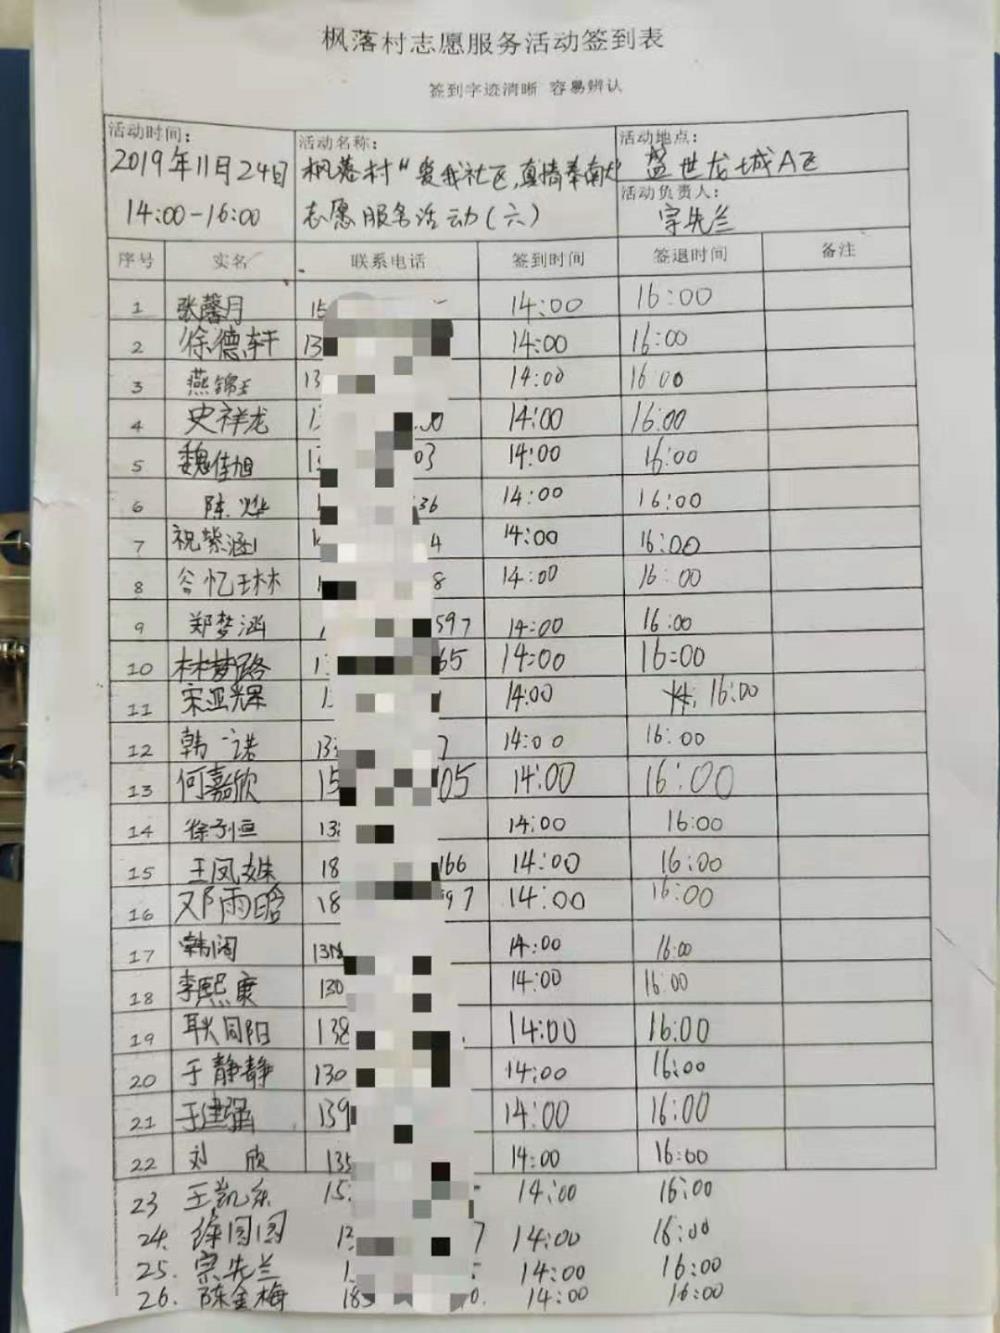 枫落村志愿服务活动签到表
签到字迹清晰 容易辨认
活动时间: 活动名称: 活动地点:
2019年11月24日 枫落村“爱我社区,真情奉南" 盛世龙城A区
14:00-16:00 志愿服务活动(六) 活动负责人: 宗先兰
序号 实名 联系电话 签到时间 签退时间 备注
1 张馨月 15 14:00 16:00
2 徐德轩 13 14:00 16:00
3 燕锦玉 13 14:00 16:00
4 史祥龙 14:00 16:00
5 魏佳旭 03 14:00 16:00
6 陈烨 36 14:00 16:00
7 祝紫涵 4 14:00 16:00
8 谷忆琳 8 14:00 16:00
9 郑梦涵 597 14:00 16:00
10 林梦璐 65 14:00 16:00
11 宋亚辉 14:00 16:00
12 韩一诺 13 7 14:00 16:00
13 何嘉欣 15 05 14:00 16:00
14 徐子恒 13 14:00 16:00
15 王凤姝 18 166 14:00 16:00
16 邓雨晗 18 97 14:00 16:00
17 韩阔 14:00 16:00
18 李熙康 130 14:00 16:00
19 耿同阳 138 14:00 16:00
20 于静静 130 14:00 16:00
21 于建强 139 14:00 16:00
22 刘欣 135 14:00 16:00
23 王凯东 15 14:00 16:00
24. 徐园园 7 14:00 16:00
25. 宗先兰 14:00 16:00
26. 陈金梅 18 0. 14:00 16:00